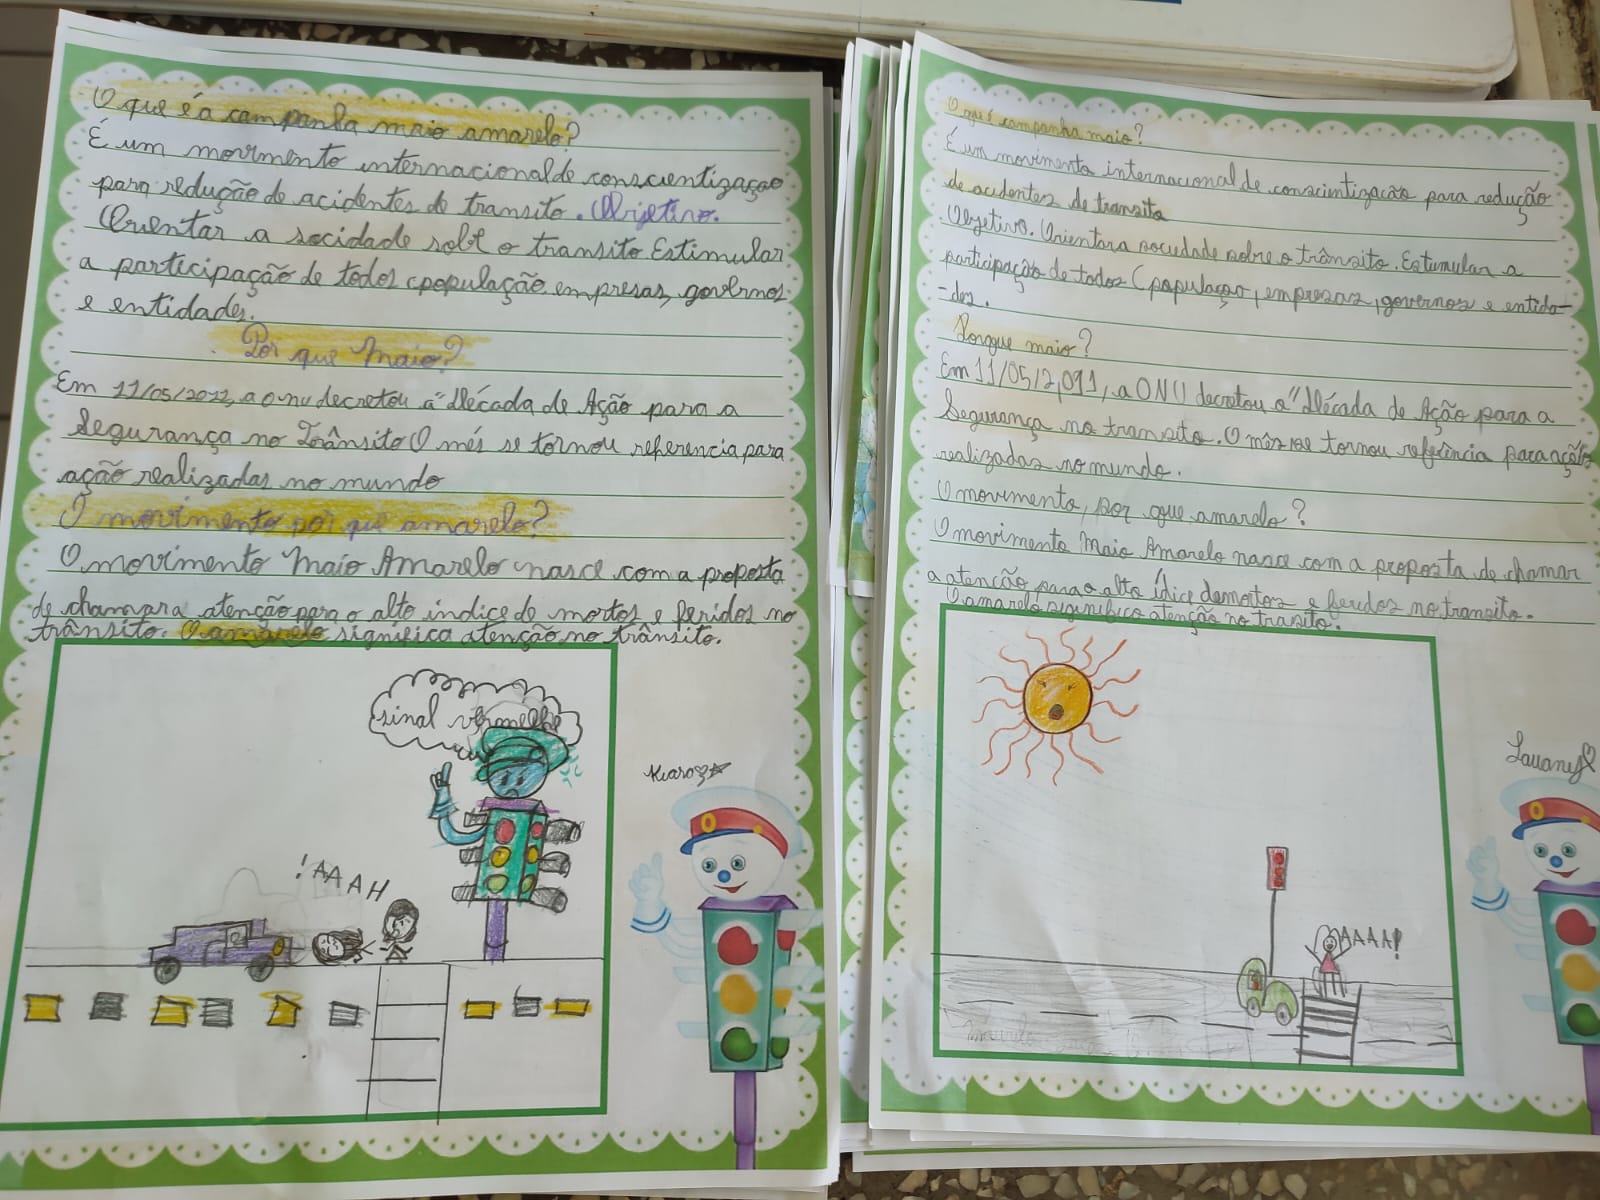 O que é a campanha maio amarelo?
É um movimento internacional de conscientização
para redução de acidentes de transito. Objetivo.
Orientar a socidade sobe o transito Estimular
a participação de todos (população, empresas, governos
e entidades.
Por que Maio?
Em 11/05/2011, a onu decretou a "Década de Ação para a
Segurança no Trânsito O mês se tornou referencia para
ação realizadas no mundo
O movimento por que amarelo?
O movimento Maio Amarelo nasce com a proposta
de chamar a atenção para o alto índice de mortos e feridos no
trânsito. O amarelo significa atenção no trânsito.
sinal vermelho
!AAAH
O que é campanha maio?
É um movimento internacional de conscimtização para redução
de acidentes de transito
Objetivo. Orientar a sociedade sobre o trânsito. Estumular a
participação de todos (população, empresas, governos e entida-
-des.
Porque maio?
Em 11/05/2,011, a ONU decretou a "Década de Ação para a
Segurança no transito. O mês se tornou referência para ações
realizadas no mundo.
O movimento, por que amarelo?
O movimento Maio Amarelo nasce com a proposta de chamar
a atenção para o alto ídice de mortos e feridos no transito.
O amarelo significa atenção no trasito.
Lauany
AAAA!